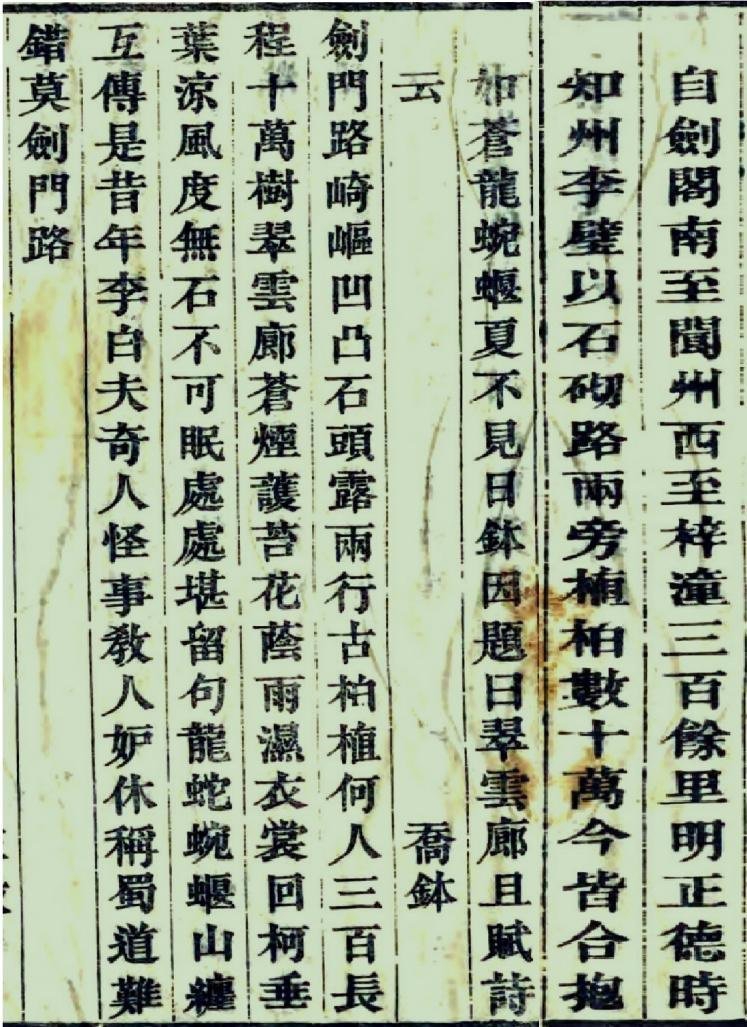 自劍閣南至閬州西至梓潼三百餘里明正德時
知州李璧以石砌路兩旁植柏數十萬今皆合抱
如蒼龍蜿蜒夏不見日鉢因題曰翠雲廊且賦詩
云 喬鉢
劍門路崎嶇凹凸石頭露兩行古柏植何人三百長
程十萬樹翠雲廊蒼煙護苔花蔭雨濕衣裳回柯垂
葉涼風度無石不可眠處處堪留句龍蛇蜿蜒山纏
互傳是昔年李白夫奇人怪事教人妒休稱蜀道難
錯莫劍門路